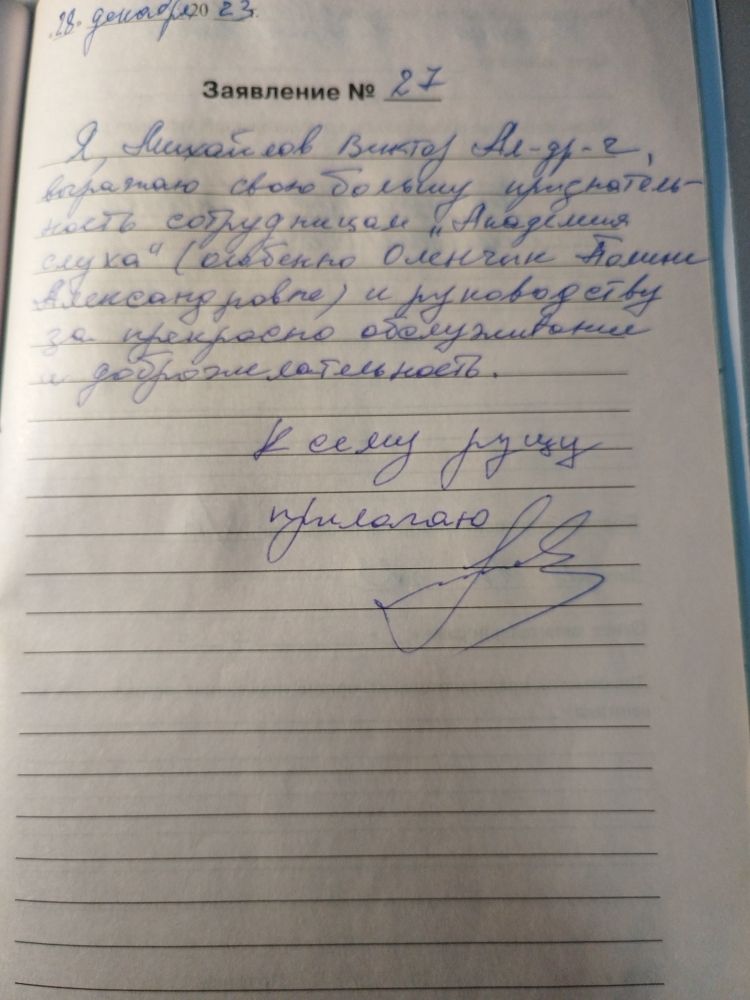 „28“ декабря 2023г.
Заявление № 27
Я, Михайлов Виктор Ал-др-ч,
выражаю свою большу признатель-
ность сотрудницам „Академия
слуха“ (особенно Оленчик Полине
Александровне) и руководству
за прекрасно обслуживание
и доброжелательность.
К сему руцу
прилагаю